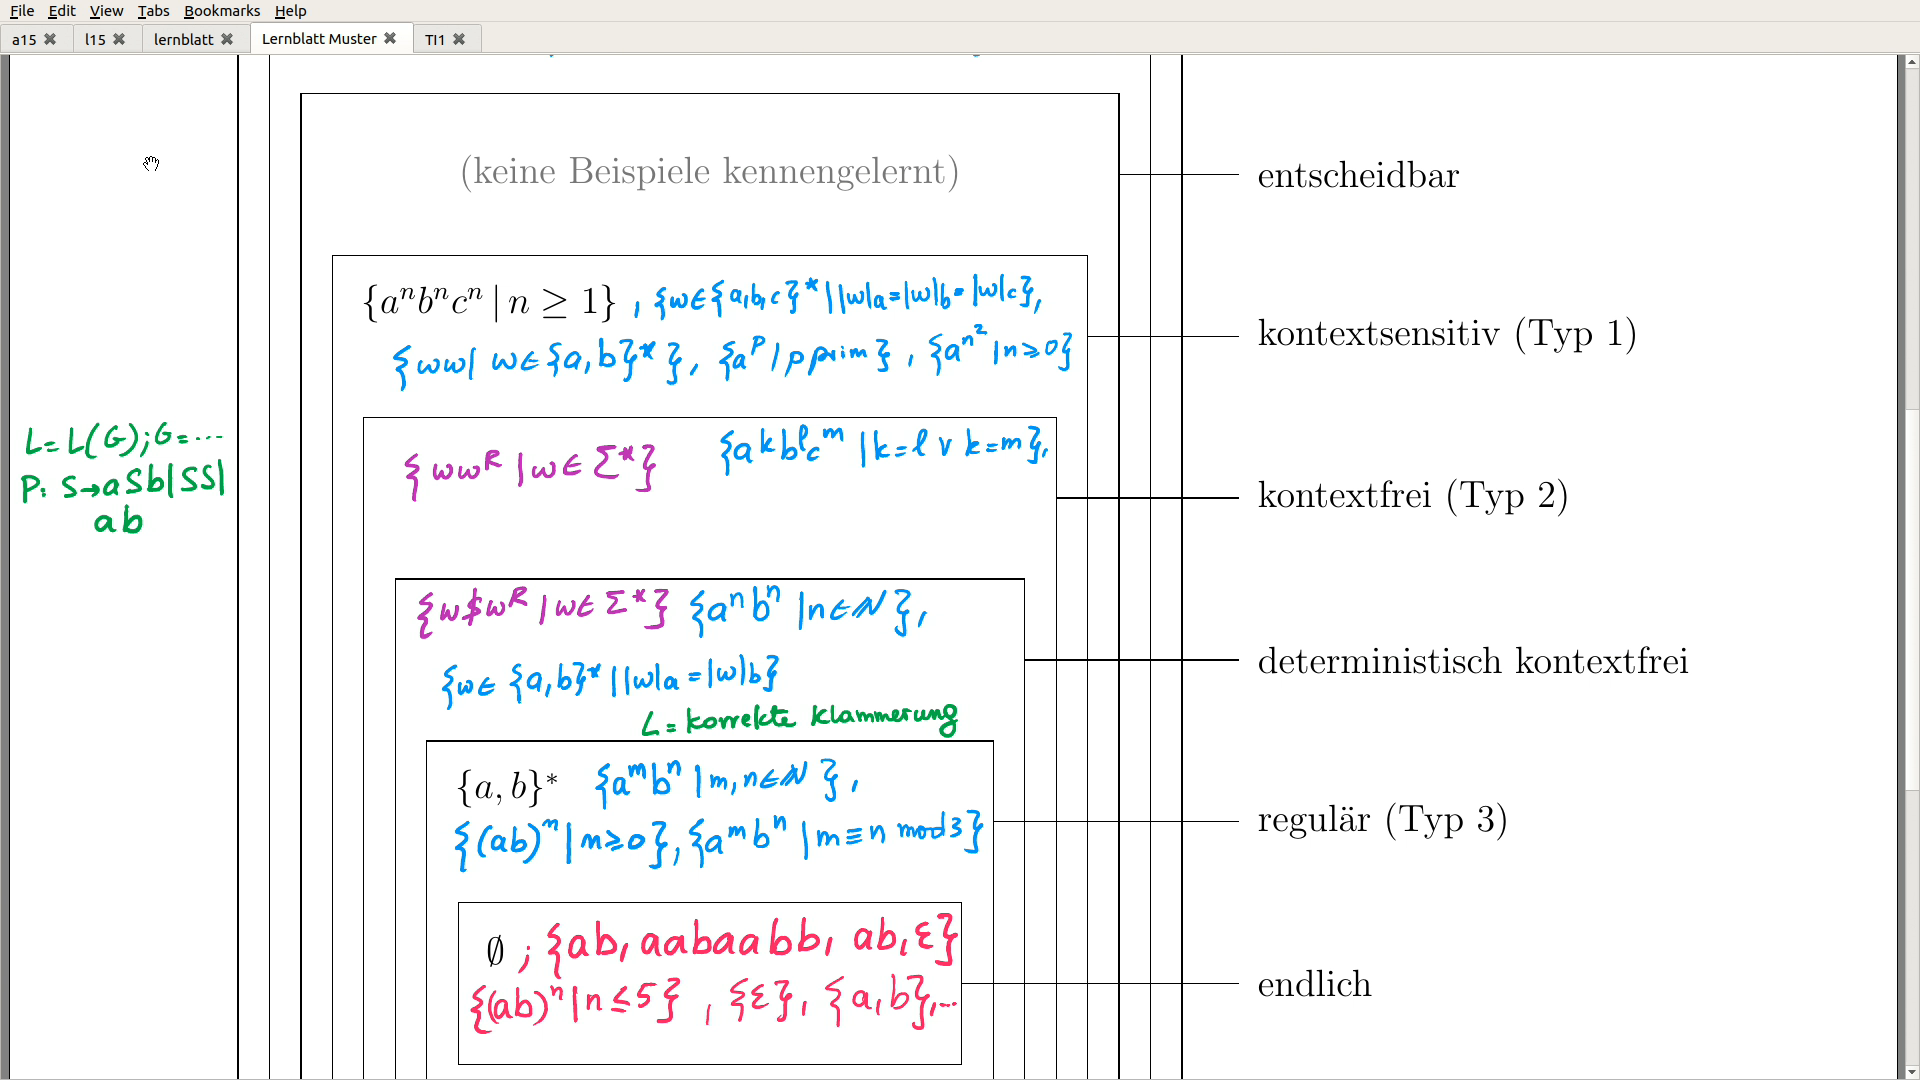 File Edit View Tabs Bookmarks Help
a15 l15 lernblatt Lernblatt Muster TI1
(keine Beispiele kennengelernt)
entscheidbar
{aⁿbⁿcⁿ | n ≥ 1} , {w∈{a,b,c}* | |w|a=|w|b=|w|c},
{ww| w∈{a,b}*}, {aᵖ | p prim}, {a^n² | n≥0}
kontextsensitiv (Typ 1)
L=L(G); G=...
P: S→aSb|SS|
ab
{wwᴿ | w∈Σ*} {aᵏbˡcᵐ | k=l ∨ k=m},
kontextfrei (Typ 2)
{w$wᴿ | w∈Σ*} {aⁿbⁿ | n∈ℕ},
{w∈{a,b}* | |w|a=|w|b}
L = korrekte Klammerung
deterministisch kontextfrei
{a, b}* {aᵐbⁿ | m,n∈ℕ},
{(ab)ⁿ | n≥0}, {aᵐbⁿ | m≡n mod 3}
regulär (Typ 3)
∅ ; {ab, aabaabb, ab, ε}
{(ab)ⁿ | n≤5}, {ε}, {a,b},...
endlich